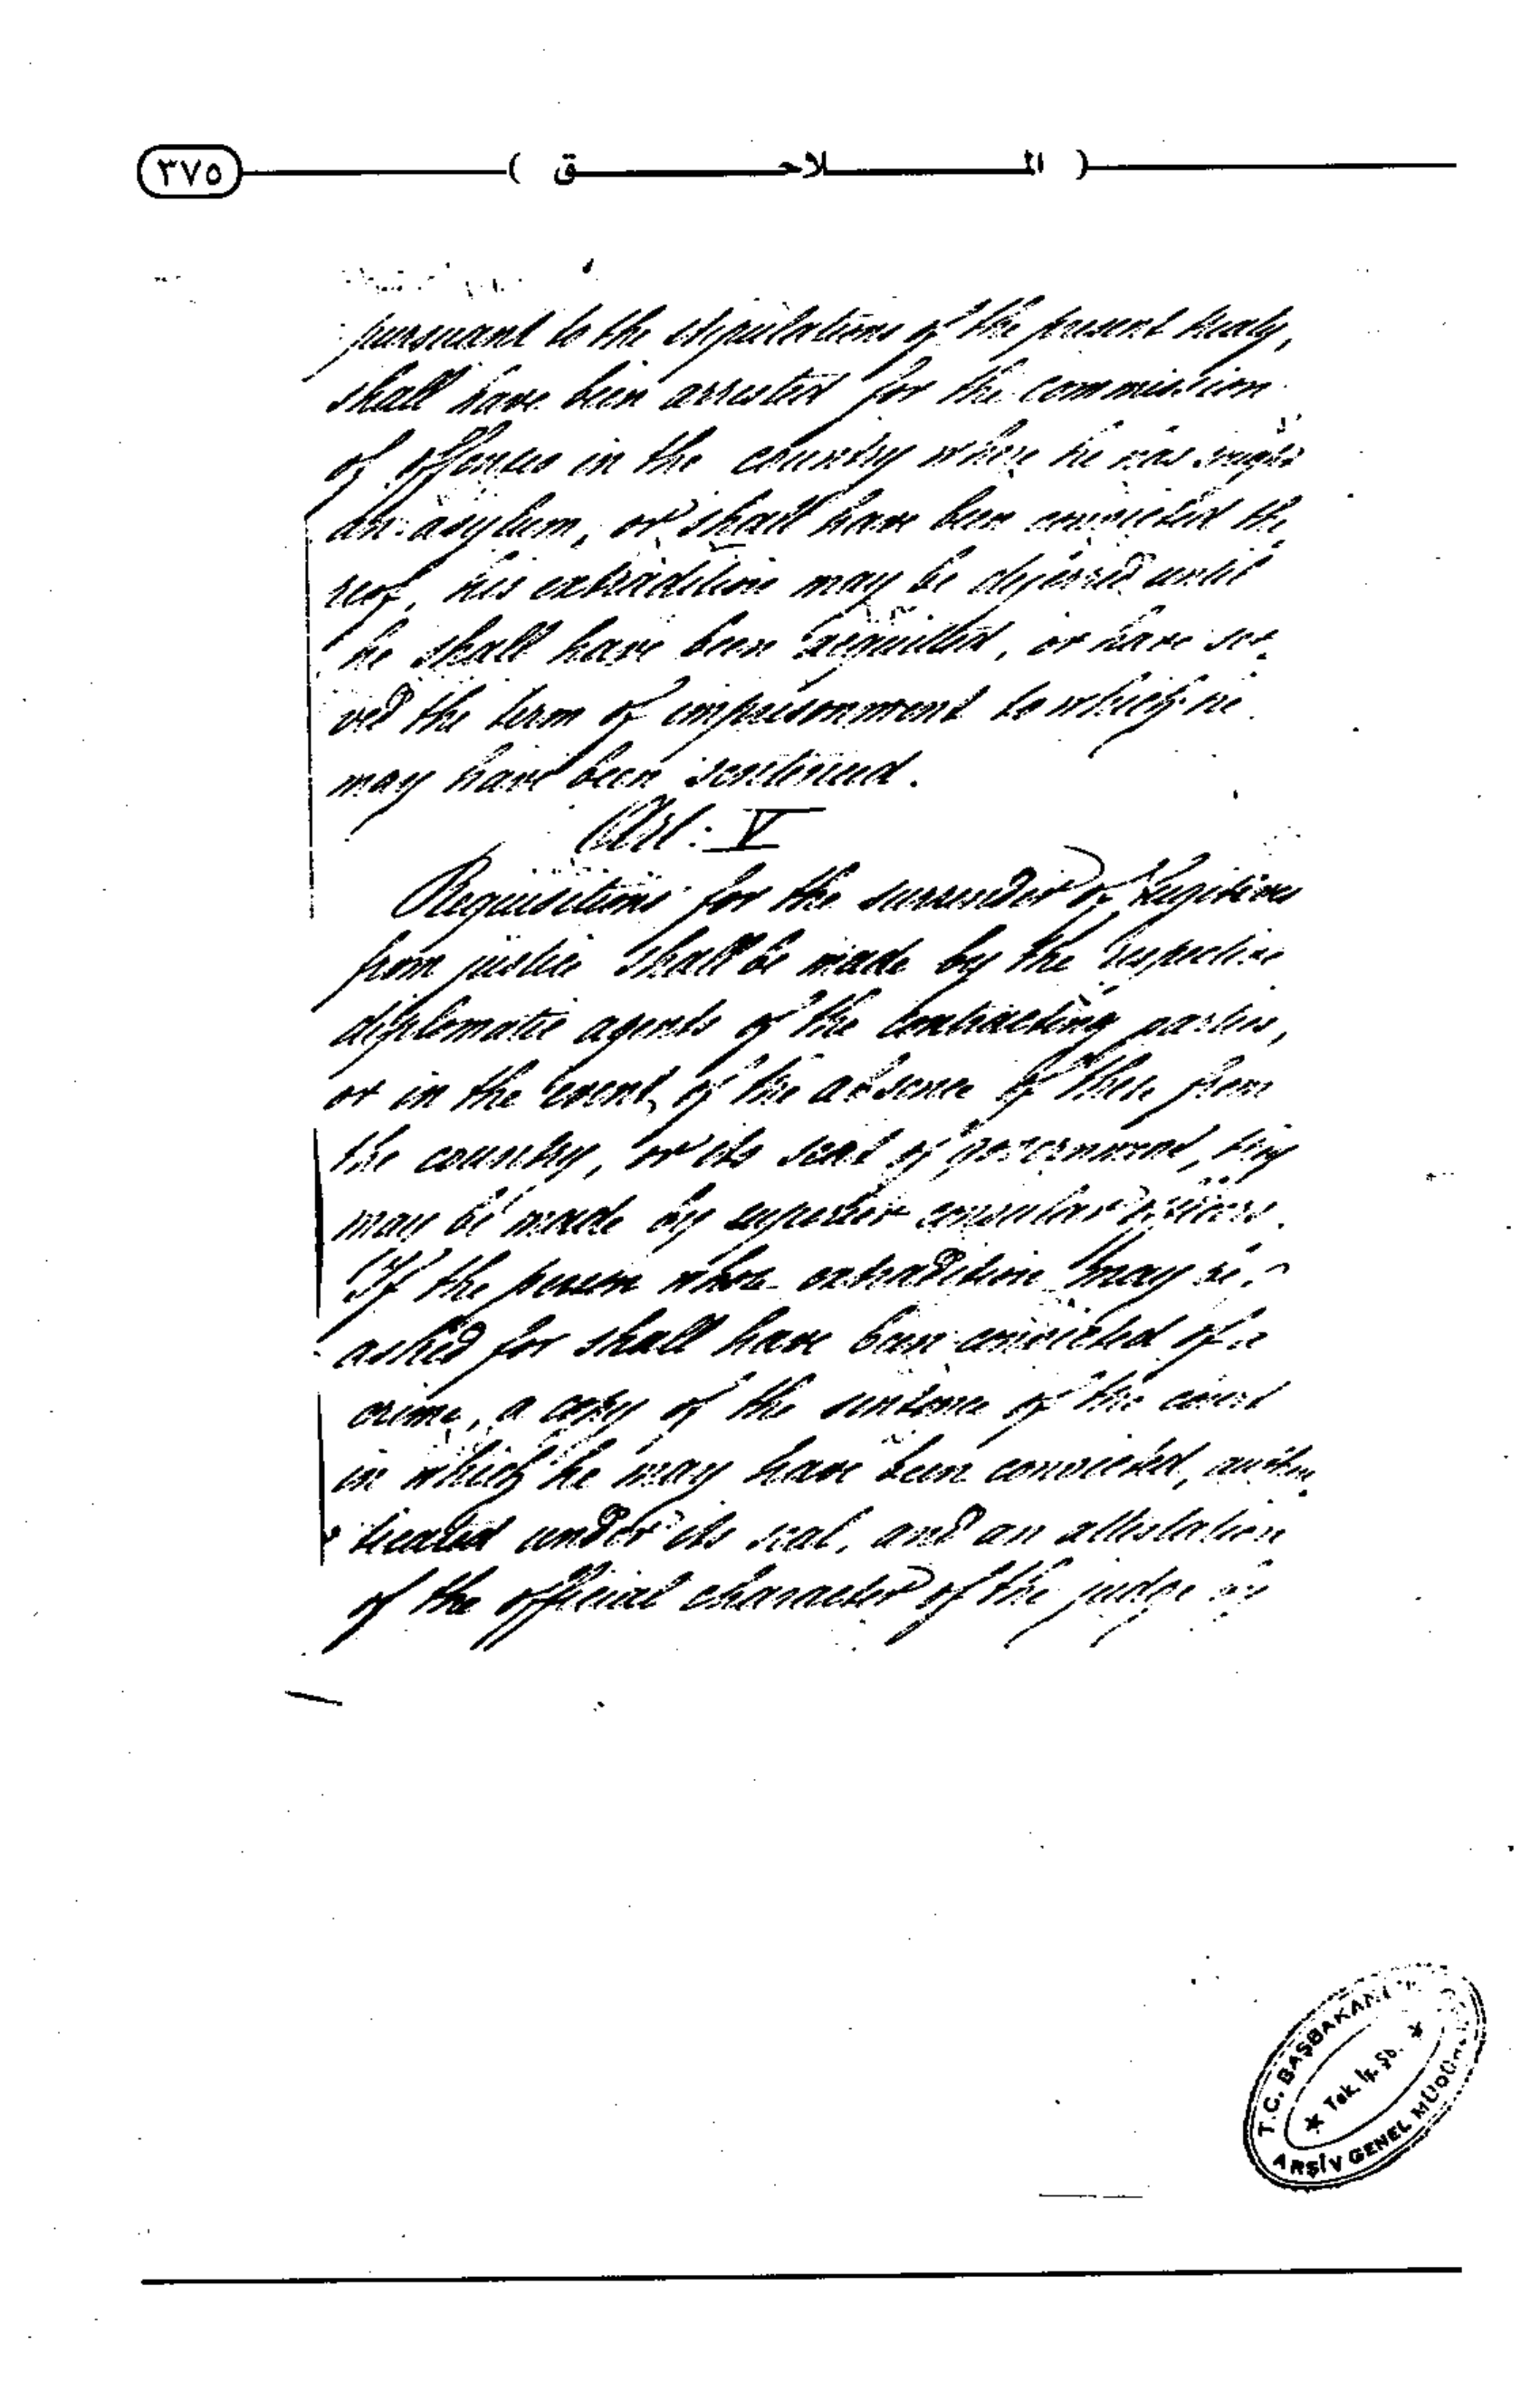 ( الملاحق ) ٣٧٥
pursuant to the stipulations of the present treaty,
shall have been arrested for the commission
of offences in the country where he has sought
an asylum, or shall have been convicted the
reof, his extradition may be deferred until
he shall have been acquitted, or have ser
ved the term of imprisonment to which he
may have been sentenced.
Art: V
Requisitions for the surrender of fugitives
from justice shall be made by the respective
diplomatic agents of the contracting parties,
or in the event of the absence of these from
the country, or its seat of government, they
may be made by superior consular officers.
If the person whose extradition may be
asked for shall have been convicted of a
crime, a copy of the sentence of the court
in which he may have been convicted, authen
ticated under its seal, and an attestation
of the official character of the judge by
T.C. BAŞBAKAN
★ Tek. İş. Şb. ★
ARŞİV GENEL MÜDÜR